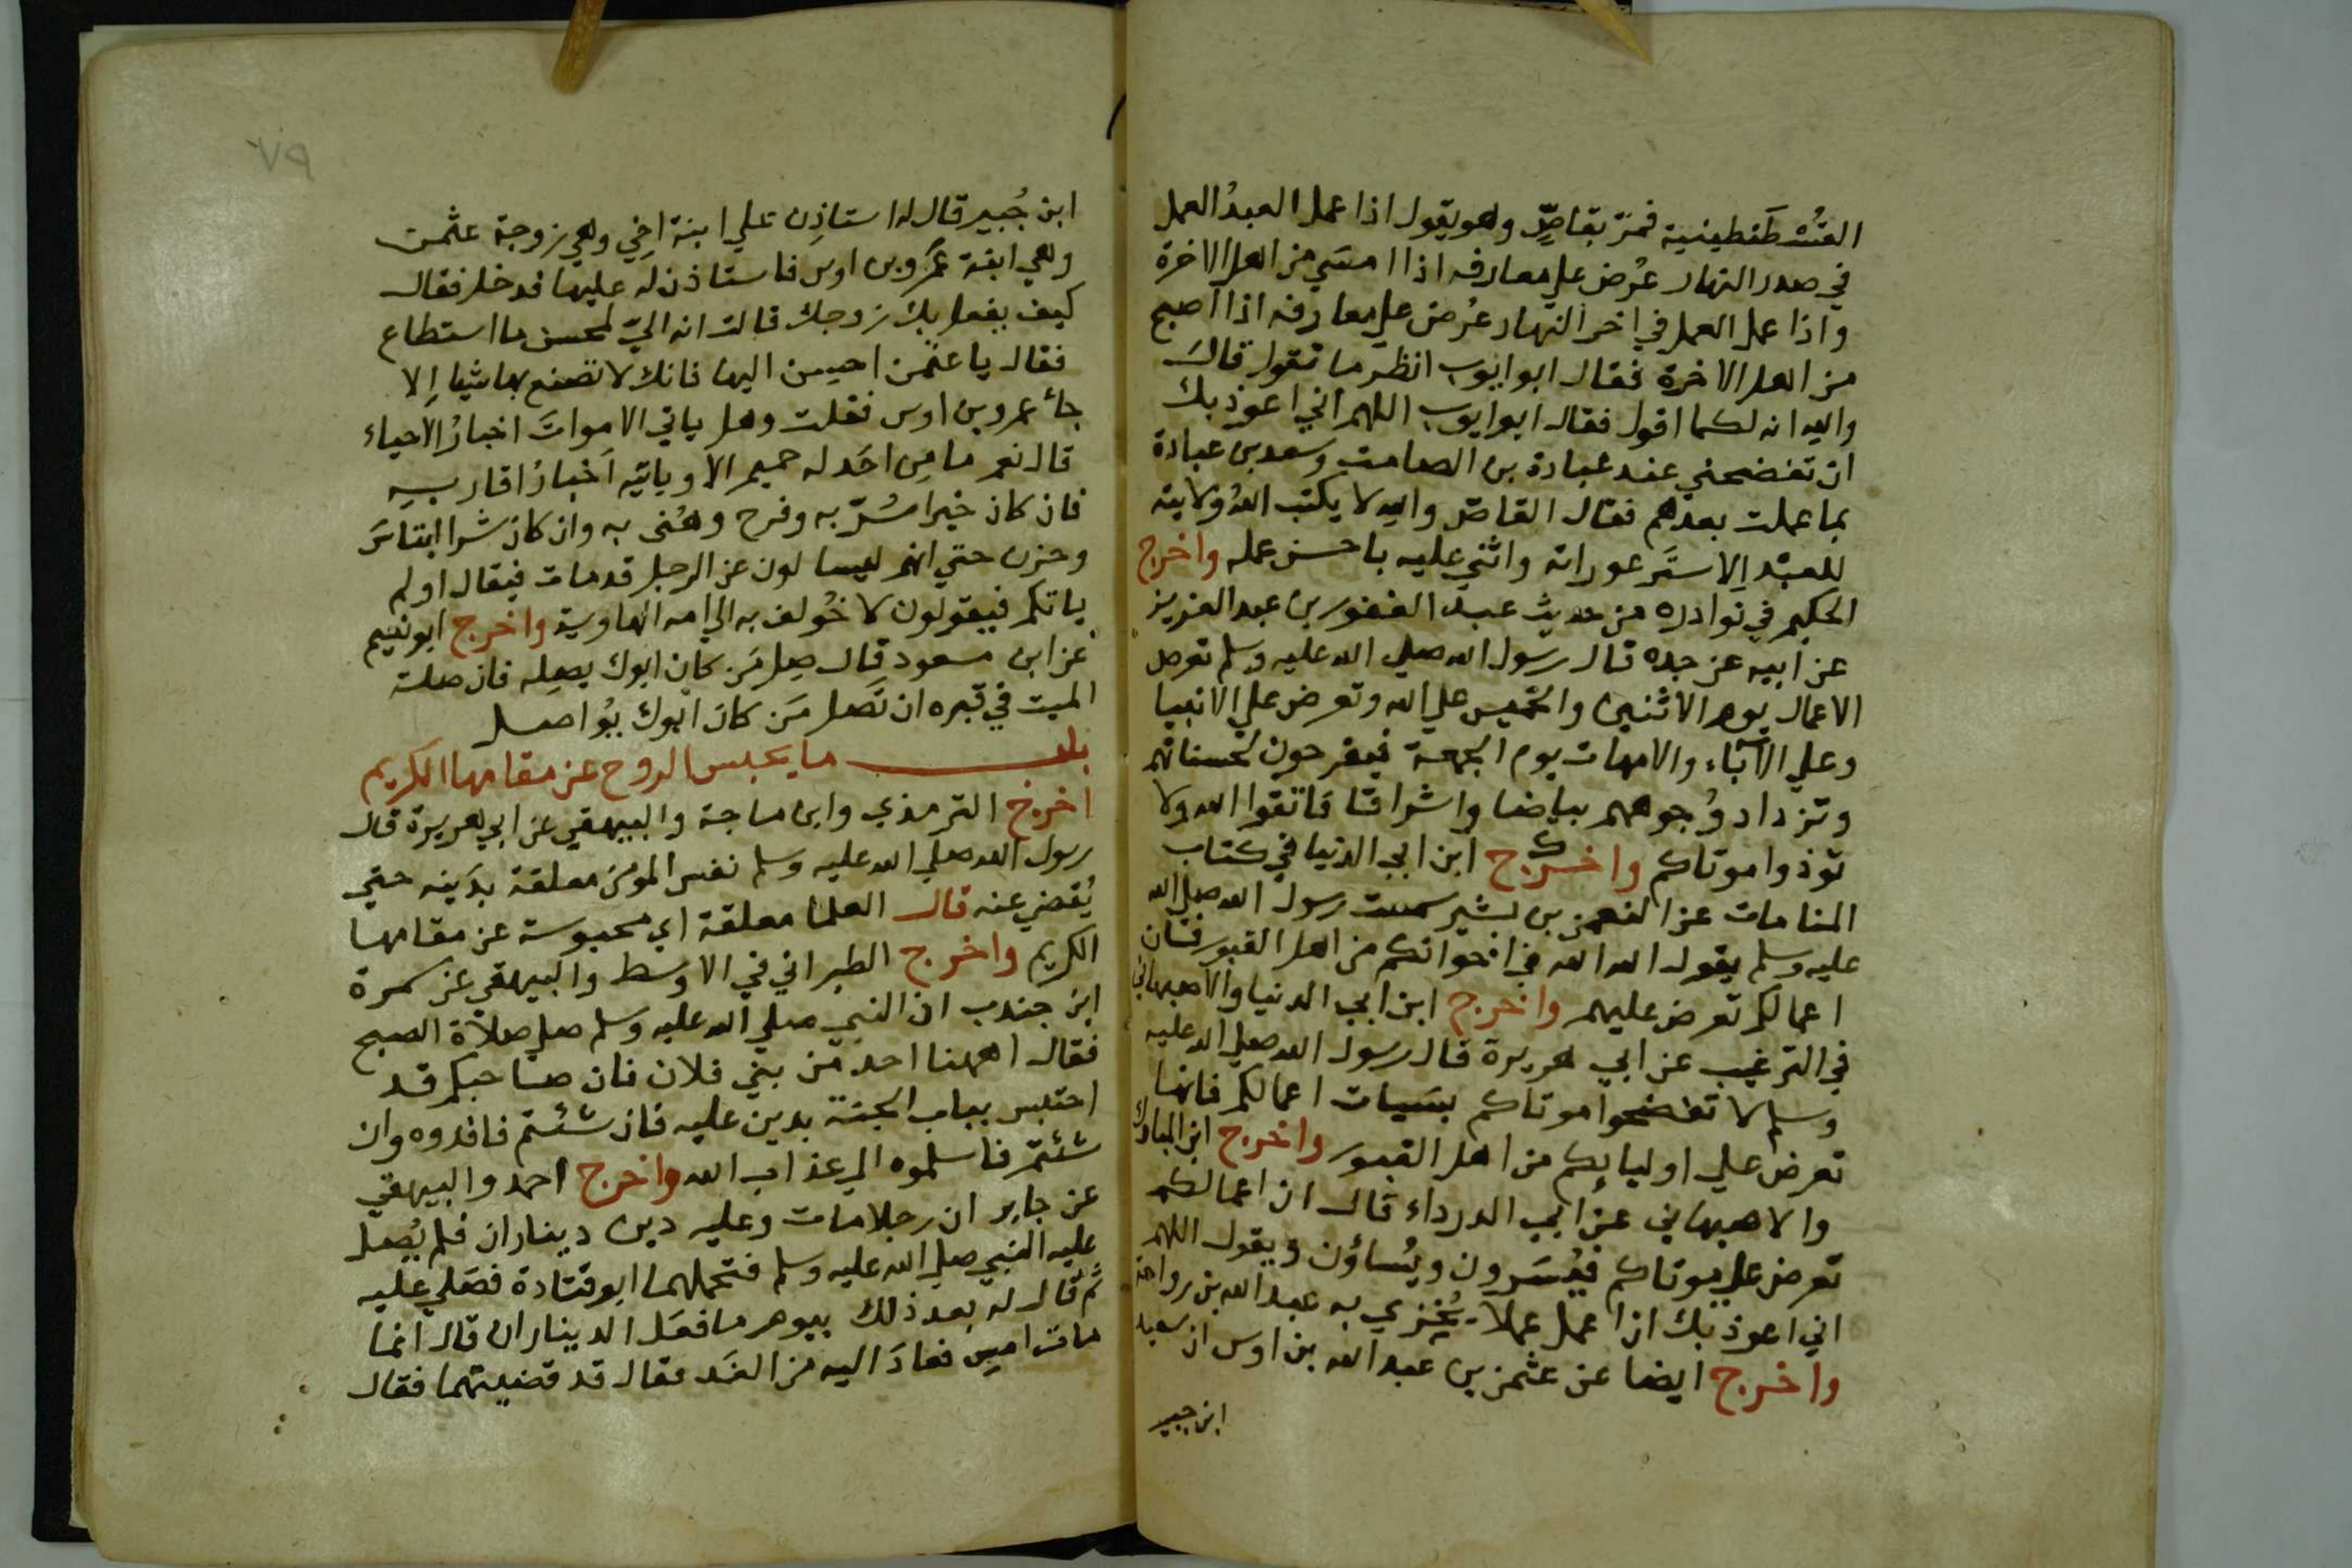 القُسْطَنطينية فمرّ بقاصٍّ وهو يقول اذا عمل العبدُ العمل
في صدر النهار عُرض علي معارفه اذا امسَي من اهل الاخرة
واذا عمل العمل في اخر النهار عُرض علي معارفه اذا اصبح
من اهل الاخرة فقال ابو ايوب انظر ما تقول قالَ
والله انه لكما اقول فقال ابو ايوب اللهم اني اعوذ بك
ان تفضحني عند عبادة بن الصامت وسعد بن عبادة
بما عملت بعدهم فقال القاصّ والله لا يكتب اللهُ ولايته
للعبْد اِلا ستَر عوراته واثني عليه باحسن عمله واخرج
الحكيم في نوادره من حديث عبد الغفور بن عبد العزيز
عن ابيه عن جده قال رسول الله صلي الله عليه وسلم تعرض
الاعمال يوم الاثنين والخميس علي الله وتعرض علي الانبيا
وعلي الآبَاء والامهات يوم الجمعة فيفرحون بحسناتهم
وتزداد وُجوههم بياضا واشراقا فاتقوا الله ولا
توذوا موتاكم واخرج ابن ابي الدنيا في كتاب
المنامات عن النعمن بن بشير سمعت رسول الله صلي الله
عليه وسلم يقول الله الله في اخوانكم من اهل القبور فان
اعمالكم تعرض عليهم واخرج ابن ابي الدنيا والاصبهاني
في الترغيب عن ابي هريرة قال رسول الله صلي الله عليه
وسلم لا تفضحوا موتاكم بسَيات اعمالكم فانها
تعرض علي اوليايكم من اهل القبور واخرج ابن المبارك
والاصبهاني عن ابي الدرداء قال ان اعمالكم
تعرض علي موتاكم فيُسَرون ويُساؤن ويقول اللهم
اني اعوذ بك ان اعمل عملا يُخزي به عبد الله بن رواحة
واخرج ايضا عن عثمن بن عبد الله بن اوس ان سعيد
ابن جبير
٧٩
ابن جُبير قال له استاذِن علي ابنة اخِي وهي زوجة عثمن
وهي ابنة عَمرو بن اوس فاستاذن له عليها فدخل فقال
كيف يفعل بك زوجك قالت انه اليّ لمحسن ما استطاع
فقال يا عثمن احسِن اليها فانك لا تصنع بها شيا اِلا
جاء عمرو بن اوس فقلت وهل ياتي الامواتَ اخبارُ الاحياء
قال نعم ما مِن احَد له حميم الا وياتيه اَخبارُ اقاربِهِ
فان كان خيرا سُرّ به وفرح وهُنى به وان كان شرا ابتاسَ
وحزن حتي انهم ليسالون عن الرجل قد مات فيقال اولم
ياتكم فيقولون لا خُولف به الي امه الهاوية واخرج ابو نعيم
عن ابن مسعود قال صِل مَن كان ابوك يصِله فان صلة
الميت في قبره ان تَصل مَن كانَ ابوك يُواصل
باب ما يحبس الروح عن مقامها الكريم
اخرج الترمذي وابن ماجة والبيهقي عن ابي هريرة قال
رسول الله صلي الله عليه وسلم نفس المومن معلقة بدَينه حتي
يُقضي عنه قال العلما معلقة اي محبوسة عن مقامها
الكريم واخرج الطبراني في الاوسط والبيهقي عن سمرة
ابن جندب ان النبي صلي الله عليه وسلم صلي صلاة الصبح
فقال اههنا احد من بني فلان فان صاحبكم قد
احتبس بباب الجنة بدين عليه فان شئتم فافدوه وان
شئتم فاسلموه الي عذاب الله واخرج احمد والبيهقي
عن جابر ان رجلا مات وعليه دين ديناران فلم يُصل
عليه النبي صلي الله عليه وسلم فتحملهما ابو قتادة فصَلي عليه
ثم قال له بعد ذلك بيوم ما فعَل الديناران قال انما
مات امسِ فعادَ اليه من الغَد فقال قد قضيتهما فقال